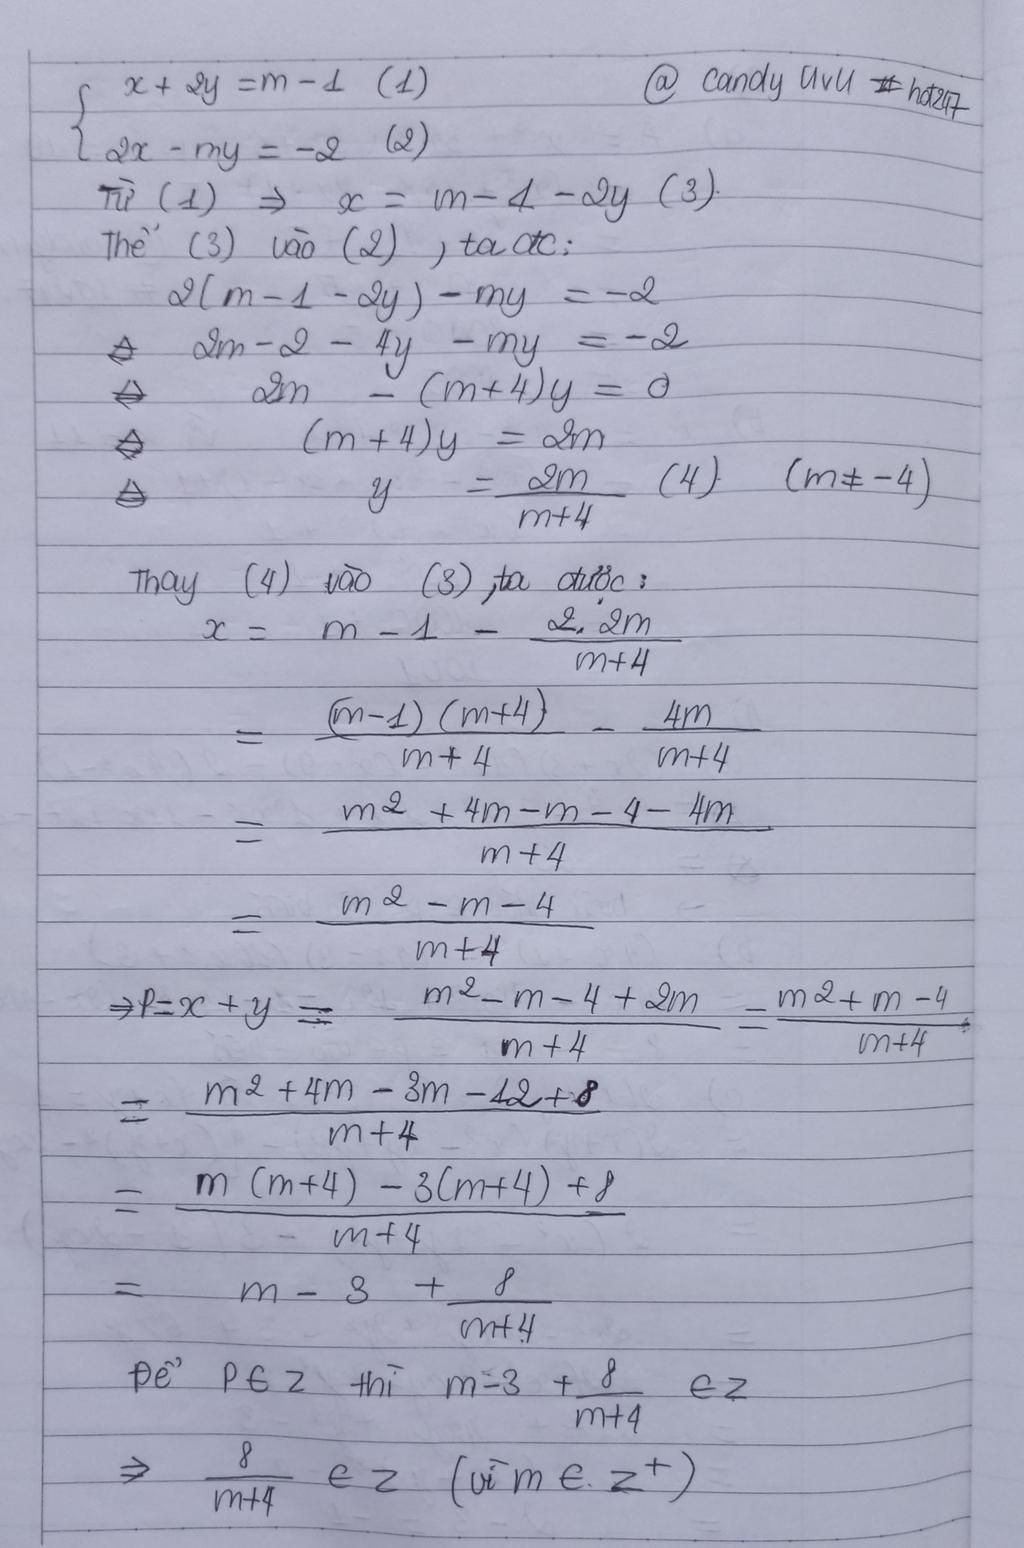 x + 2y = m - 1 (1) @ candy UvU #hot247
2x - my = -2 (2)
Từ (1) ⇒ x = m - 1 - 2y (3).
Thế (3) vào (2), ta đc:
2(m - 1 - 2y) - my = -2
⇔ 2m - 2 - 4y - my = -2
⇔ 2m - (m+4)y = 0
⇔ (m+4)y = 2m
⇔ y = 2m/(m+4) (4) (m ≠ -4)
Thay (4) vào (3), ta được:
x = m - 1 - 2.2m/(m+4)
= (m-1)(m+4)/(m+4) - 4m/(m+4)
= (m² + 4m - m - 4 - 4m)/(m+4)
= (m² - m - 4)/(m+4)
⇒ P = x + y = (m² - m - 4 + 2m)/(m+4) = (m² + m - 4)/(m+4)
= (m² + 4m - 3m - 12 + 8)/(m+4)
= (m(m+4) - 3(m+4) + 8)/(m+4)
= m - 3 + 8/(m+4)
Để P ∈ Z thì m - 3 + 8/(m+4) ∈ Z
⇒ 8/(m+4) ∈ Z (vì m ∈ Z⁺)